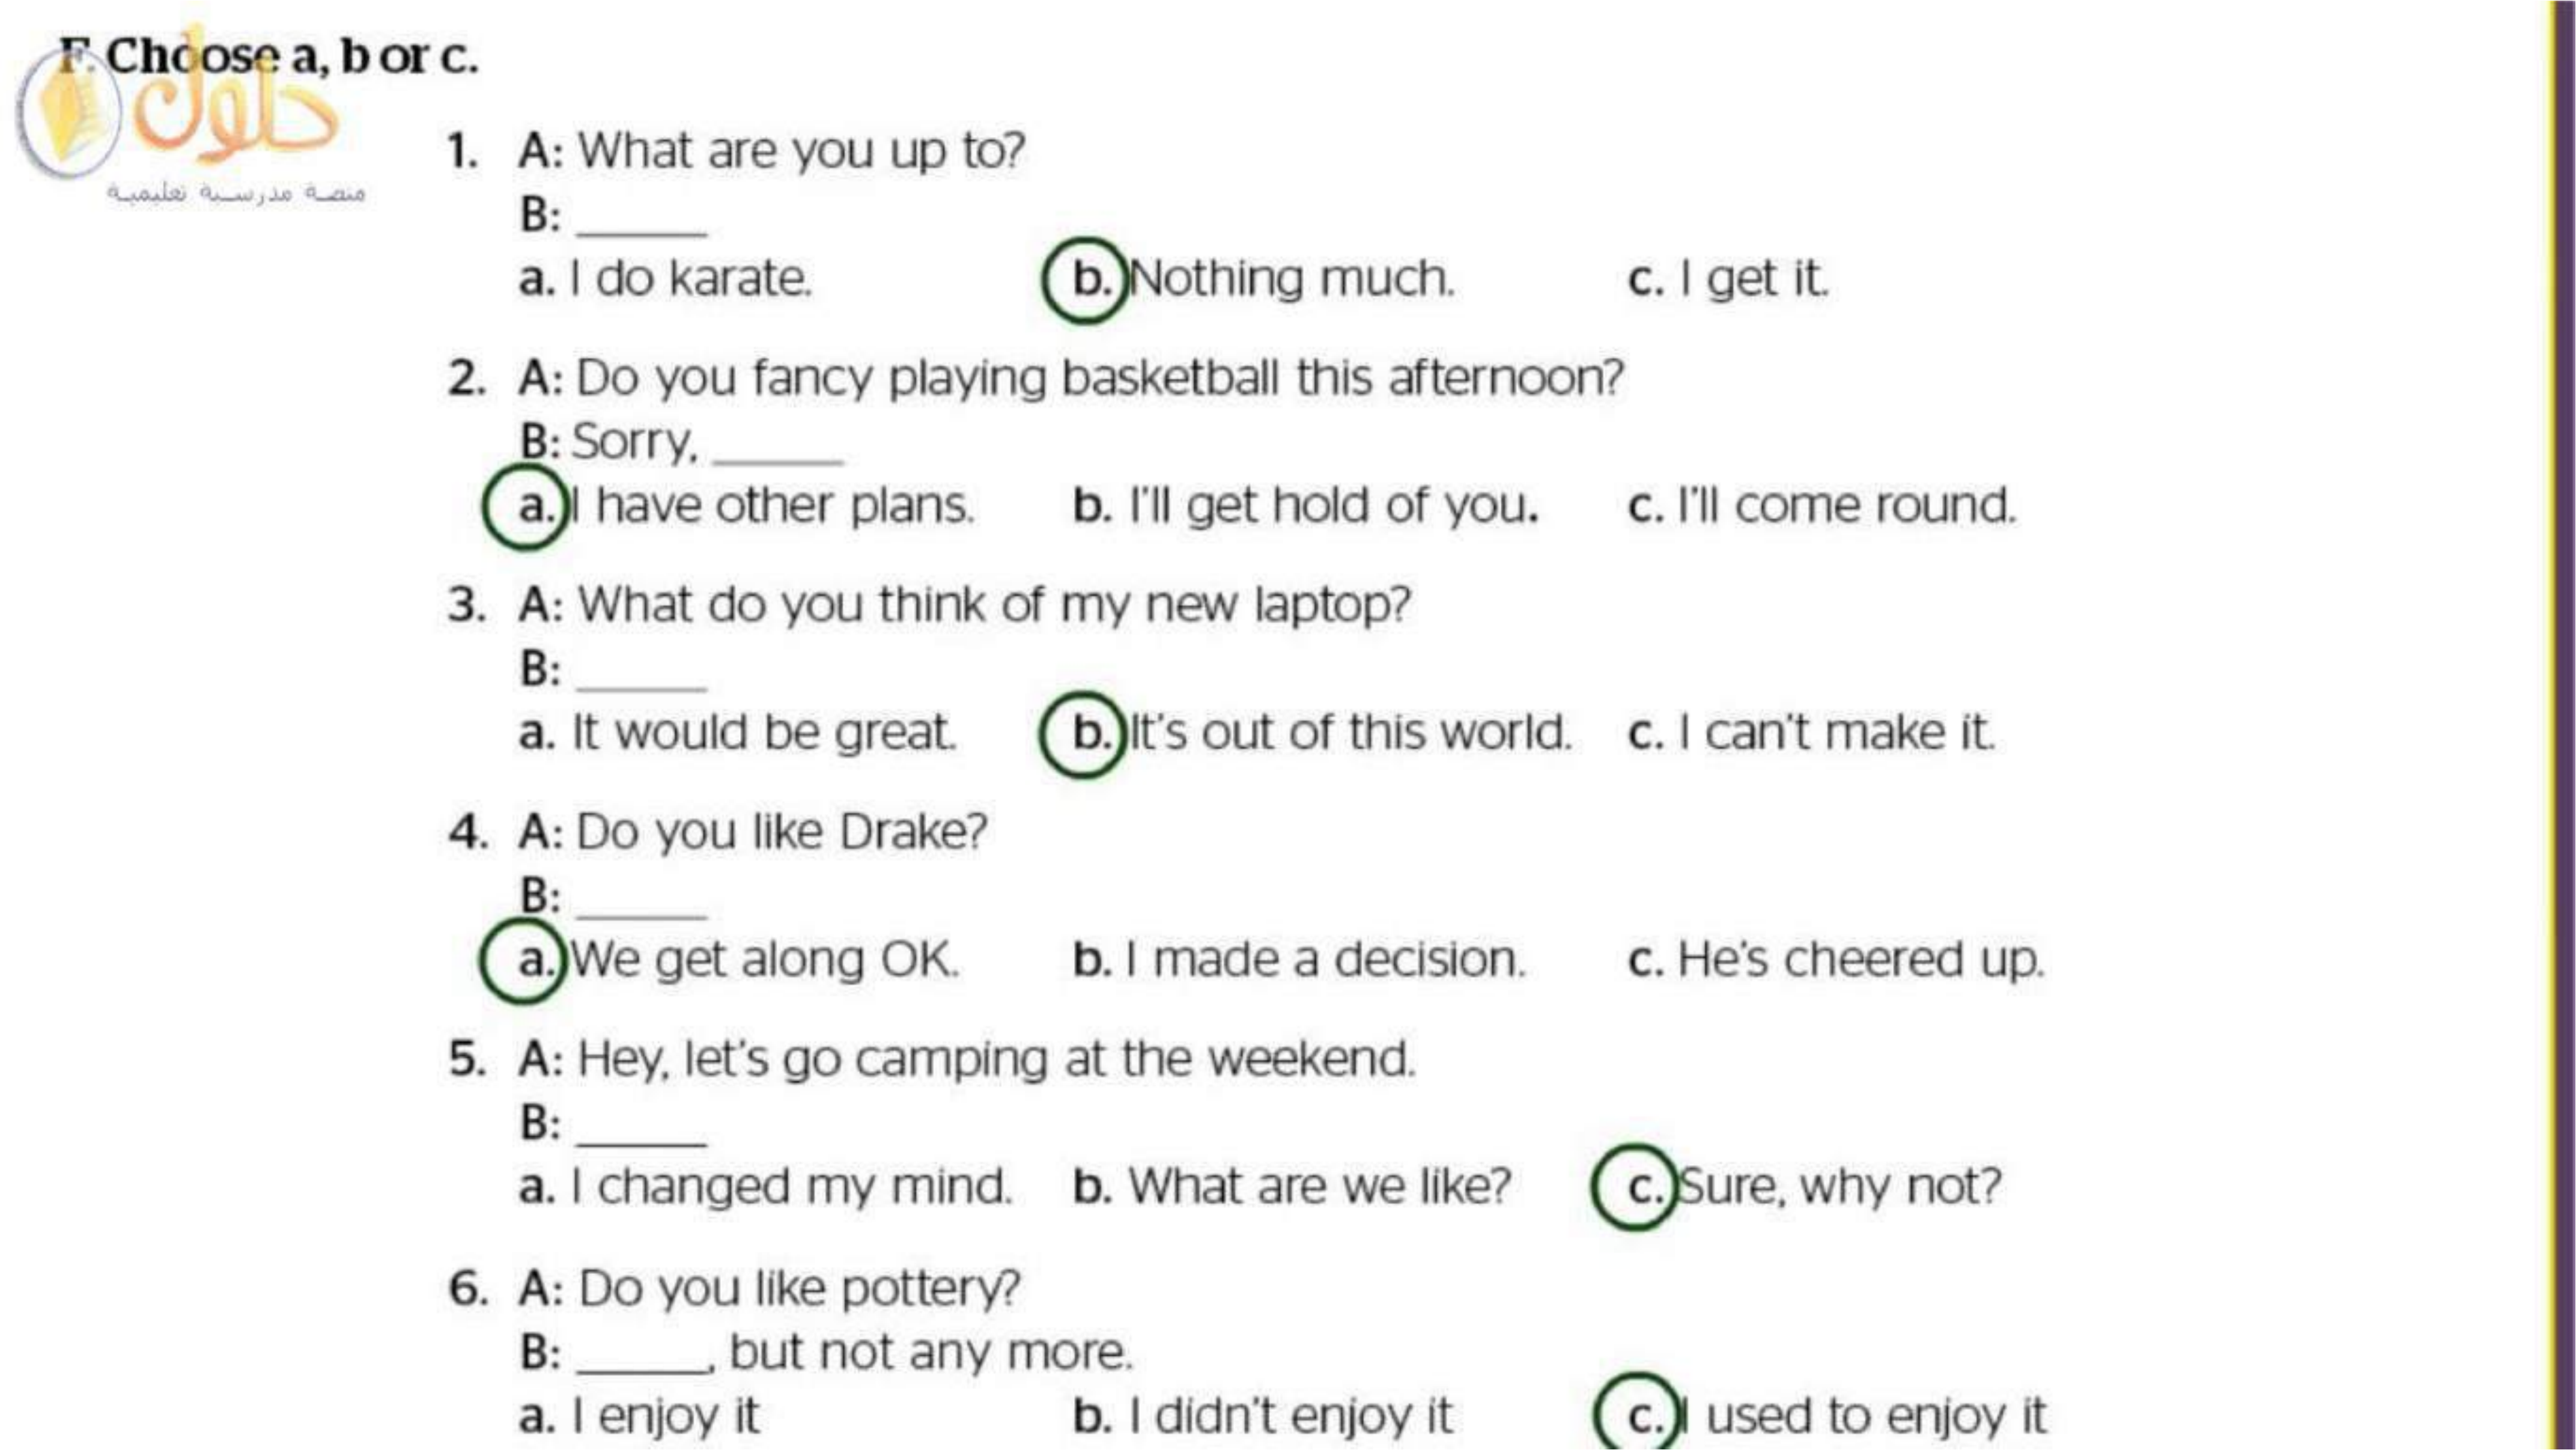 F. Choose a, b or c.
حلول
منصة مدرسية تعليمية
1. A: What are you up to?
B: _____
a. I do karate. b. Nothing much. c. I get it.
2. A: Do you fancy playing basketball this afternoon?
B: Sorry, _____
a. I have other plans. b. I'll get hold of you. c. I'll come round.
3. A: What do you think of my new laptop?
B: _____
a. It would be great. b. It's out of this world. c. I can't make it.
4. A: Do you like Drake?
B: _____
a. We get along OK. b. I made a decision. c. He's cheered up.
5. A: Hey, let's go camping at the weekend.
B: _____
a. I changed my mind. b. What are we like? c. Sure, why not?
6. A: Do you like pottery?
B: _____, but not any more.
a. I enjoy it b. I didn't enjoy it c. I used to enjoy it